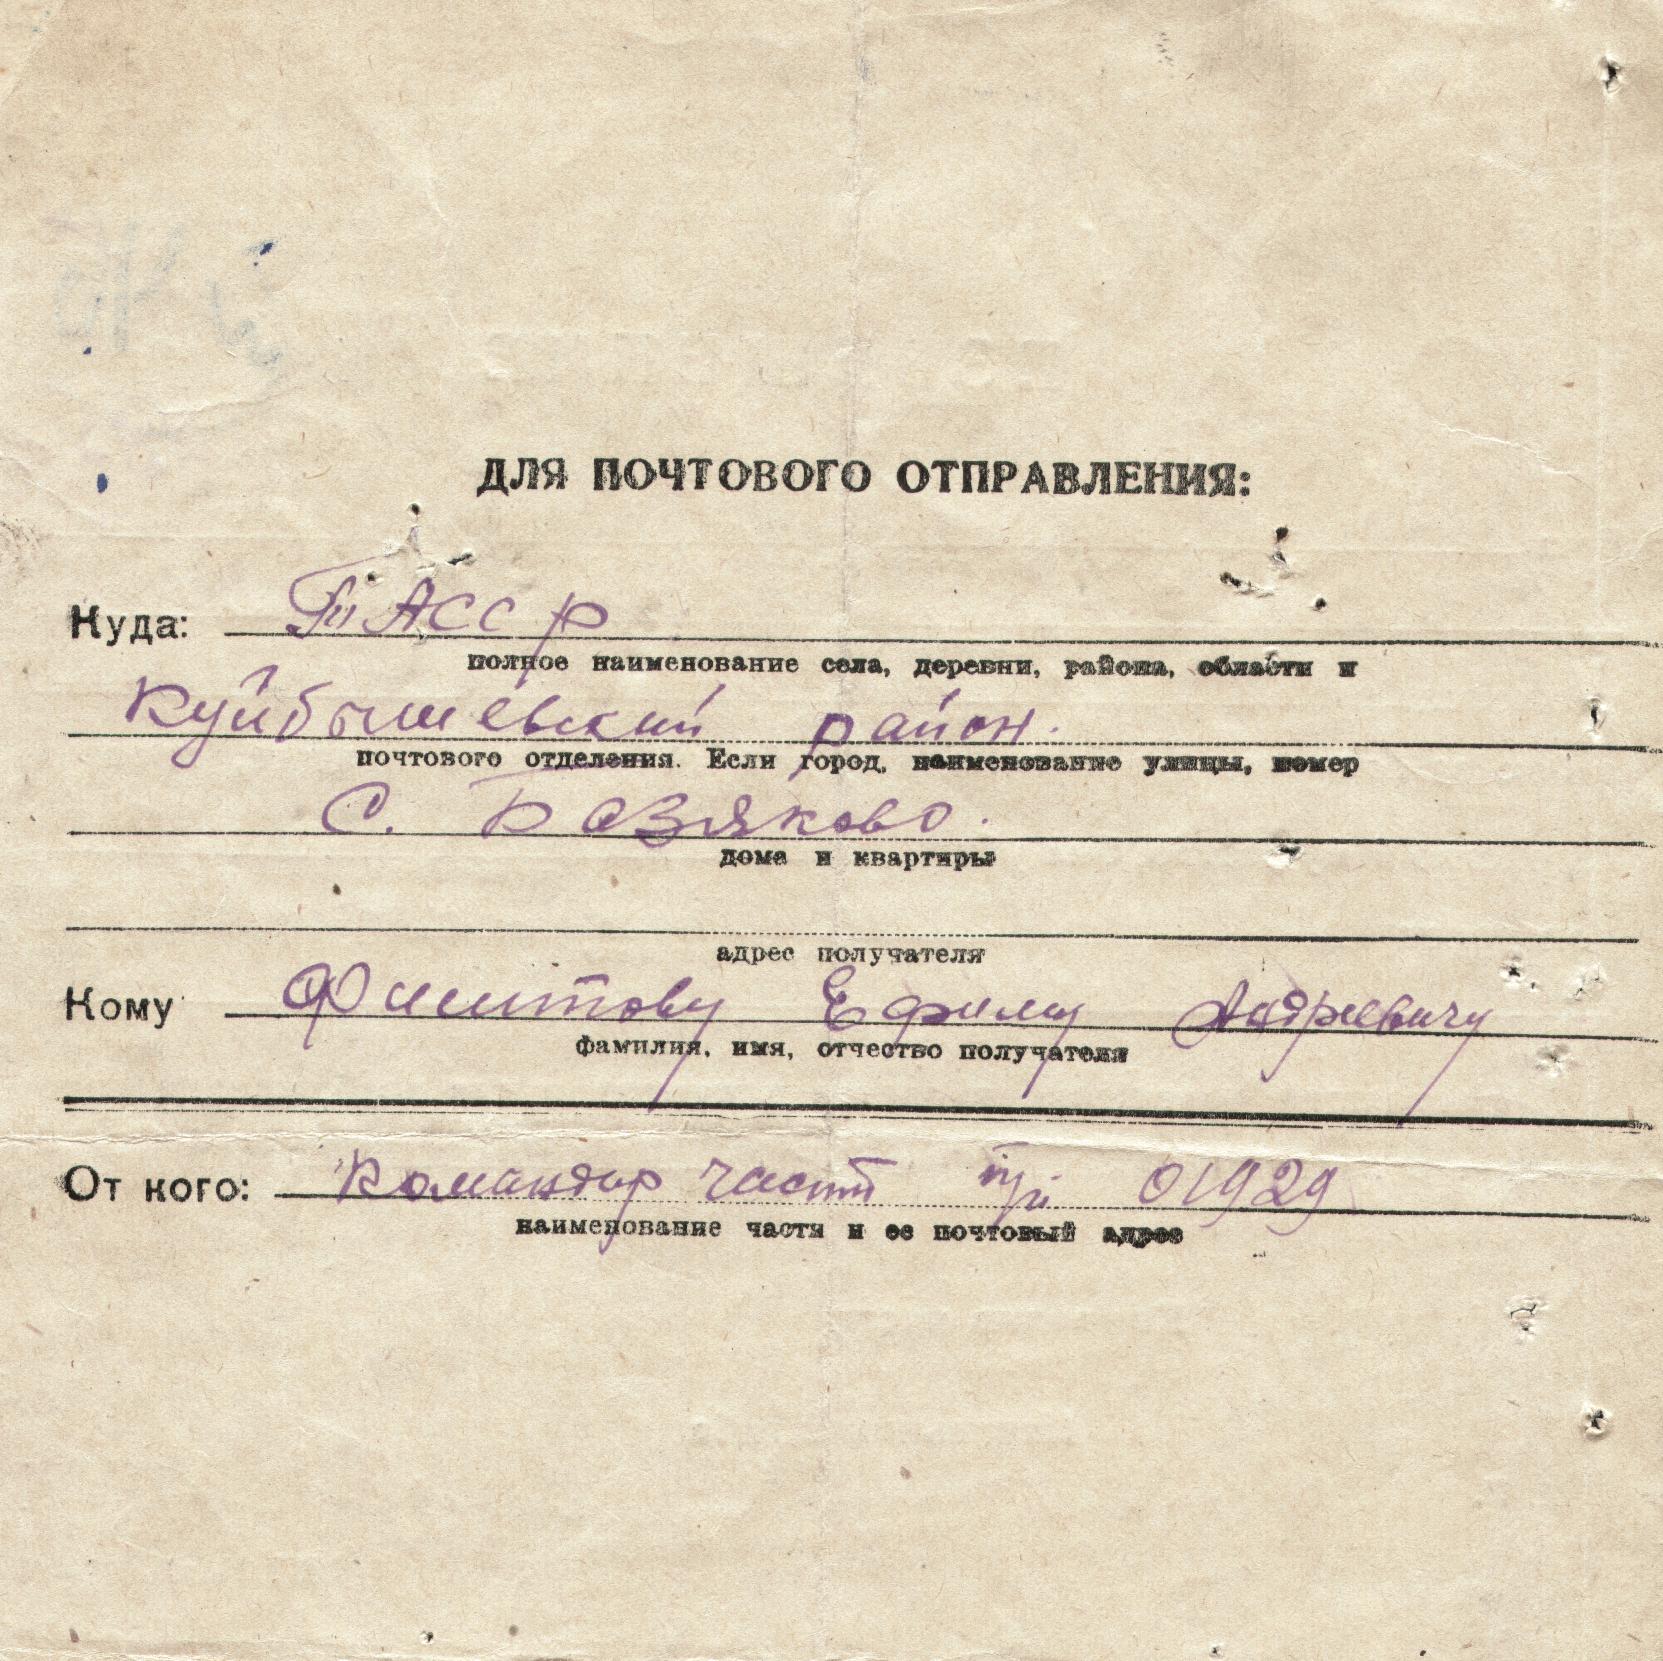 ДЛЯ ПОЧТОВОГО ОТПРАВЛЕНИЯ:
Куда: ТАССР
полное наименование села, деревни, района, области и
Куйбышевский район.
почтового отделения. Если город, наименование улицы, номер
С. Базяково.
дома и квартиры
адрес получателя
Кому Ефиму Андреевичу
фамилия, имя, отчество получателя
От кого: Командир части 01929
наименование части и ее почтовый адрес